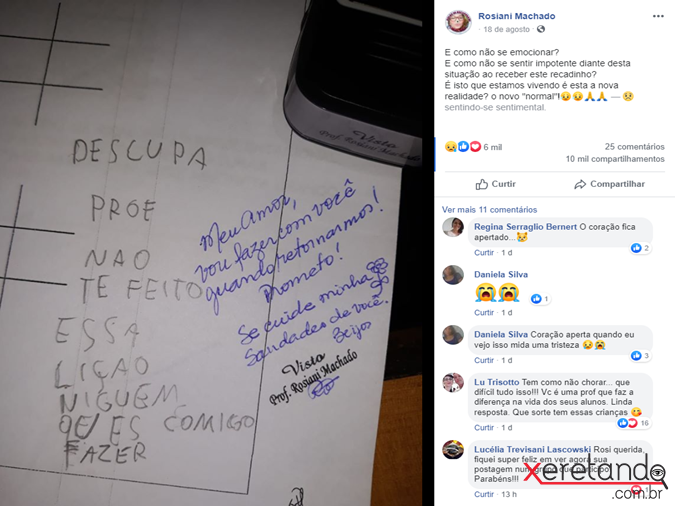 DESCUPA
PROF
NÃO
TE FEITO
ESSA
LIÇÃO
NIGUEM
COMIGO
FAZER
Meu Amor,
vou fazer com você
quando retornarmos!
Prometo!
Se cuide minha
Saudades de você.
Beijos
Visto
Prof. Rosiani Machado
Visto
Prof. Rosiani Machado
Rosiani Machado
18 de agosto
E como não se emocionar?
E como não se sentir impotente diante desta
situação ao receber este recadinho?
É isto que estamos vivendo é esta a nova
realidade? o novo "normal"!😖😖🙏🙏 — 😢
sentindo-se sentimental.
6 mil
25 comentários
10 mil compartilhamentos
Curtir
Compartilhar
Ver mais 11 comentários
Regina Serraglio Bernert O coração fica
apertado...😿
2
Curtir · 1 d
Daniela Silva
😭😭
1
Curtir · 1 d
Daniela Silva Coração aperta quando eu
vejo isso mida uma tristeza 😢😭
3
Curtir · 1 d
Lu Trisotto Tem como não chorar... que
difícil tudo isso!!! Vc é uma prof que faz a
diferença na vida dos seus alunos. Linda
resposta. Que sorte tem essas crianças 😘
16
Curtir · 1 d
Lucélia Trevisani Lascowski Rosi querida,
fiquei super feliz em ver agora sua
postagem num grupo que participo
Parabéns!!!
Curtir · 13 h
xeretando
.com.br